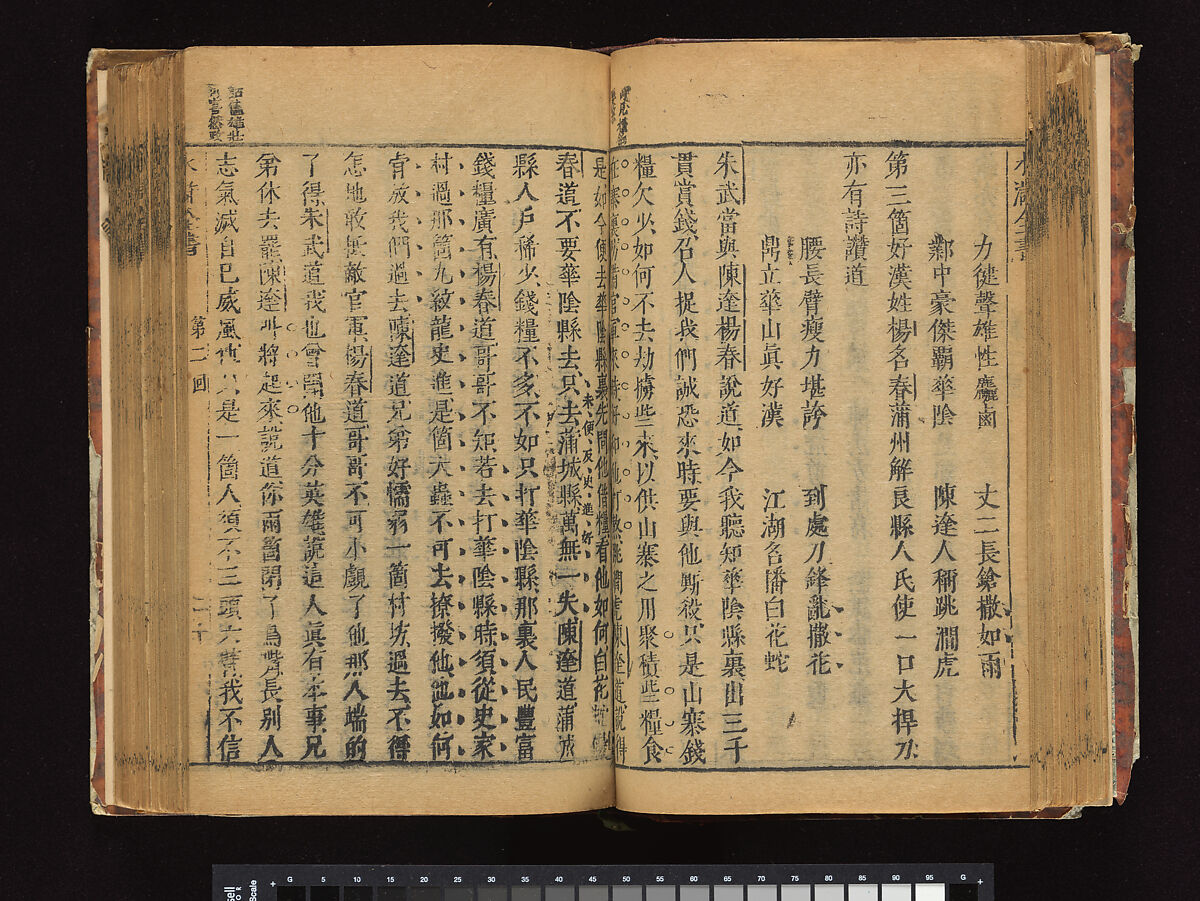 水滸全書
力健聲雄性麤鹵　丈二長鎗撒如雨
鄴中豪傑霸華陰　陳達人稱跳澗虎
第三箇好漢姓楊名春蒲州解良縣人氏使一口大捍刀
亦有詩讚道
腰長臂瘦力堪誇　到處刀鋒亂撒花
鼎立華山真好漢　江湖名播白花蛇
朱武當與陳達楊春說道如今我聽知華陰縣裏出三千
貫賞錢召人捉我們誠恐來時要與他廝殺只是山寨錢
糧欠少如何不去劫擄些來以供山寨之用聚積些糧食
在寨裏防備官軍來時好和他打熬跳澗虎陳達道說得
是如今便去華陰縣裏先問他借糧看他如何白花蛇
未便反史進好
春道不要華陰縣去只去蒲城縣萬無一失陳達道蒲城
縣人戶稀少錢糧不多不如只打華陰縣那裏人民豐富
錢糧廣有楊春道哥哥不知若去打華陰縣時須從史家
村過那箇九紋龍史進是箇大蟲不可去撩撥他他如何
肯放我們過去陳達道兄弟好懦弱一箇村坊過去不得
怎地敢抵敵官軍楊春道哥哥不可小覷了他那人端的
了得朱武道我也曾聞他十分英雄說這人真有本事兄
弟休去罷陳達叫將起來說道你兩箇閉了鳥嘴長別人
志氣滅自己威風他只是一箇人須不三頭六臂我不信
水滸全書　第二回